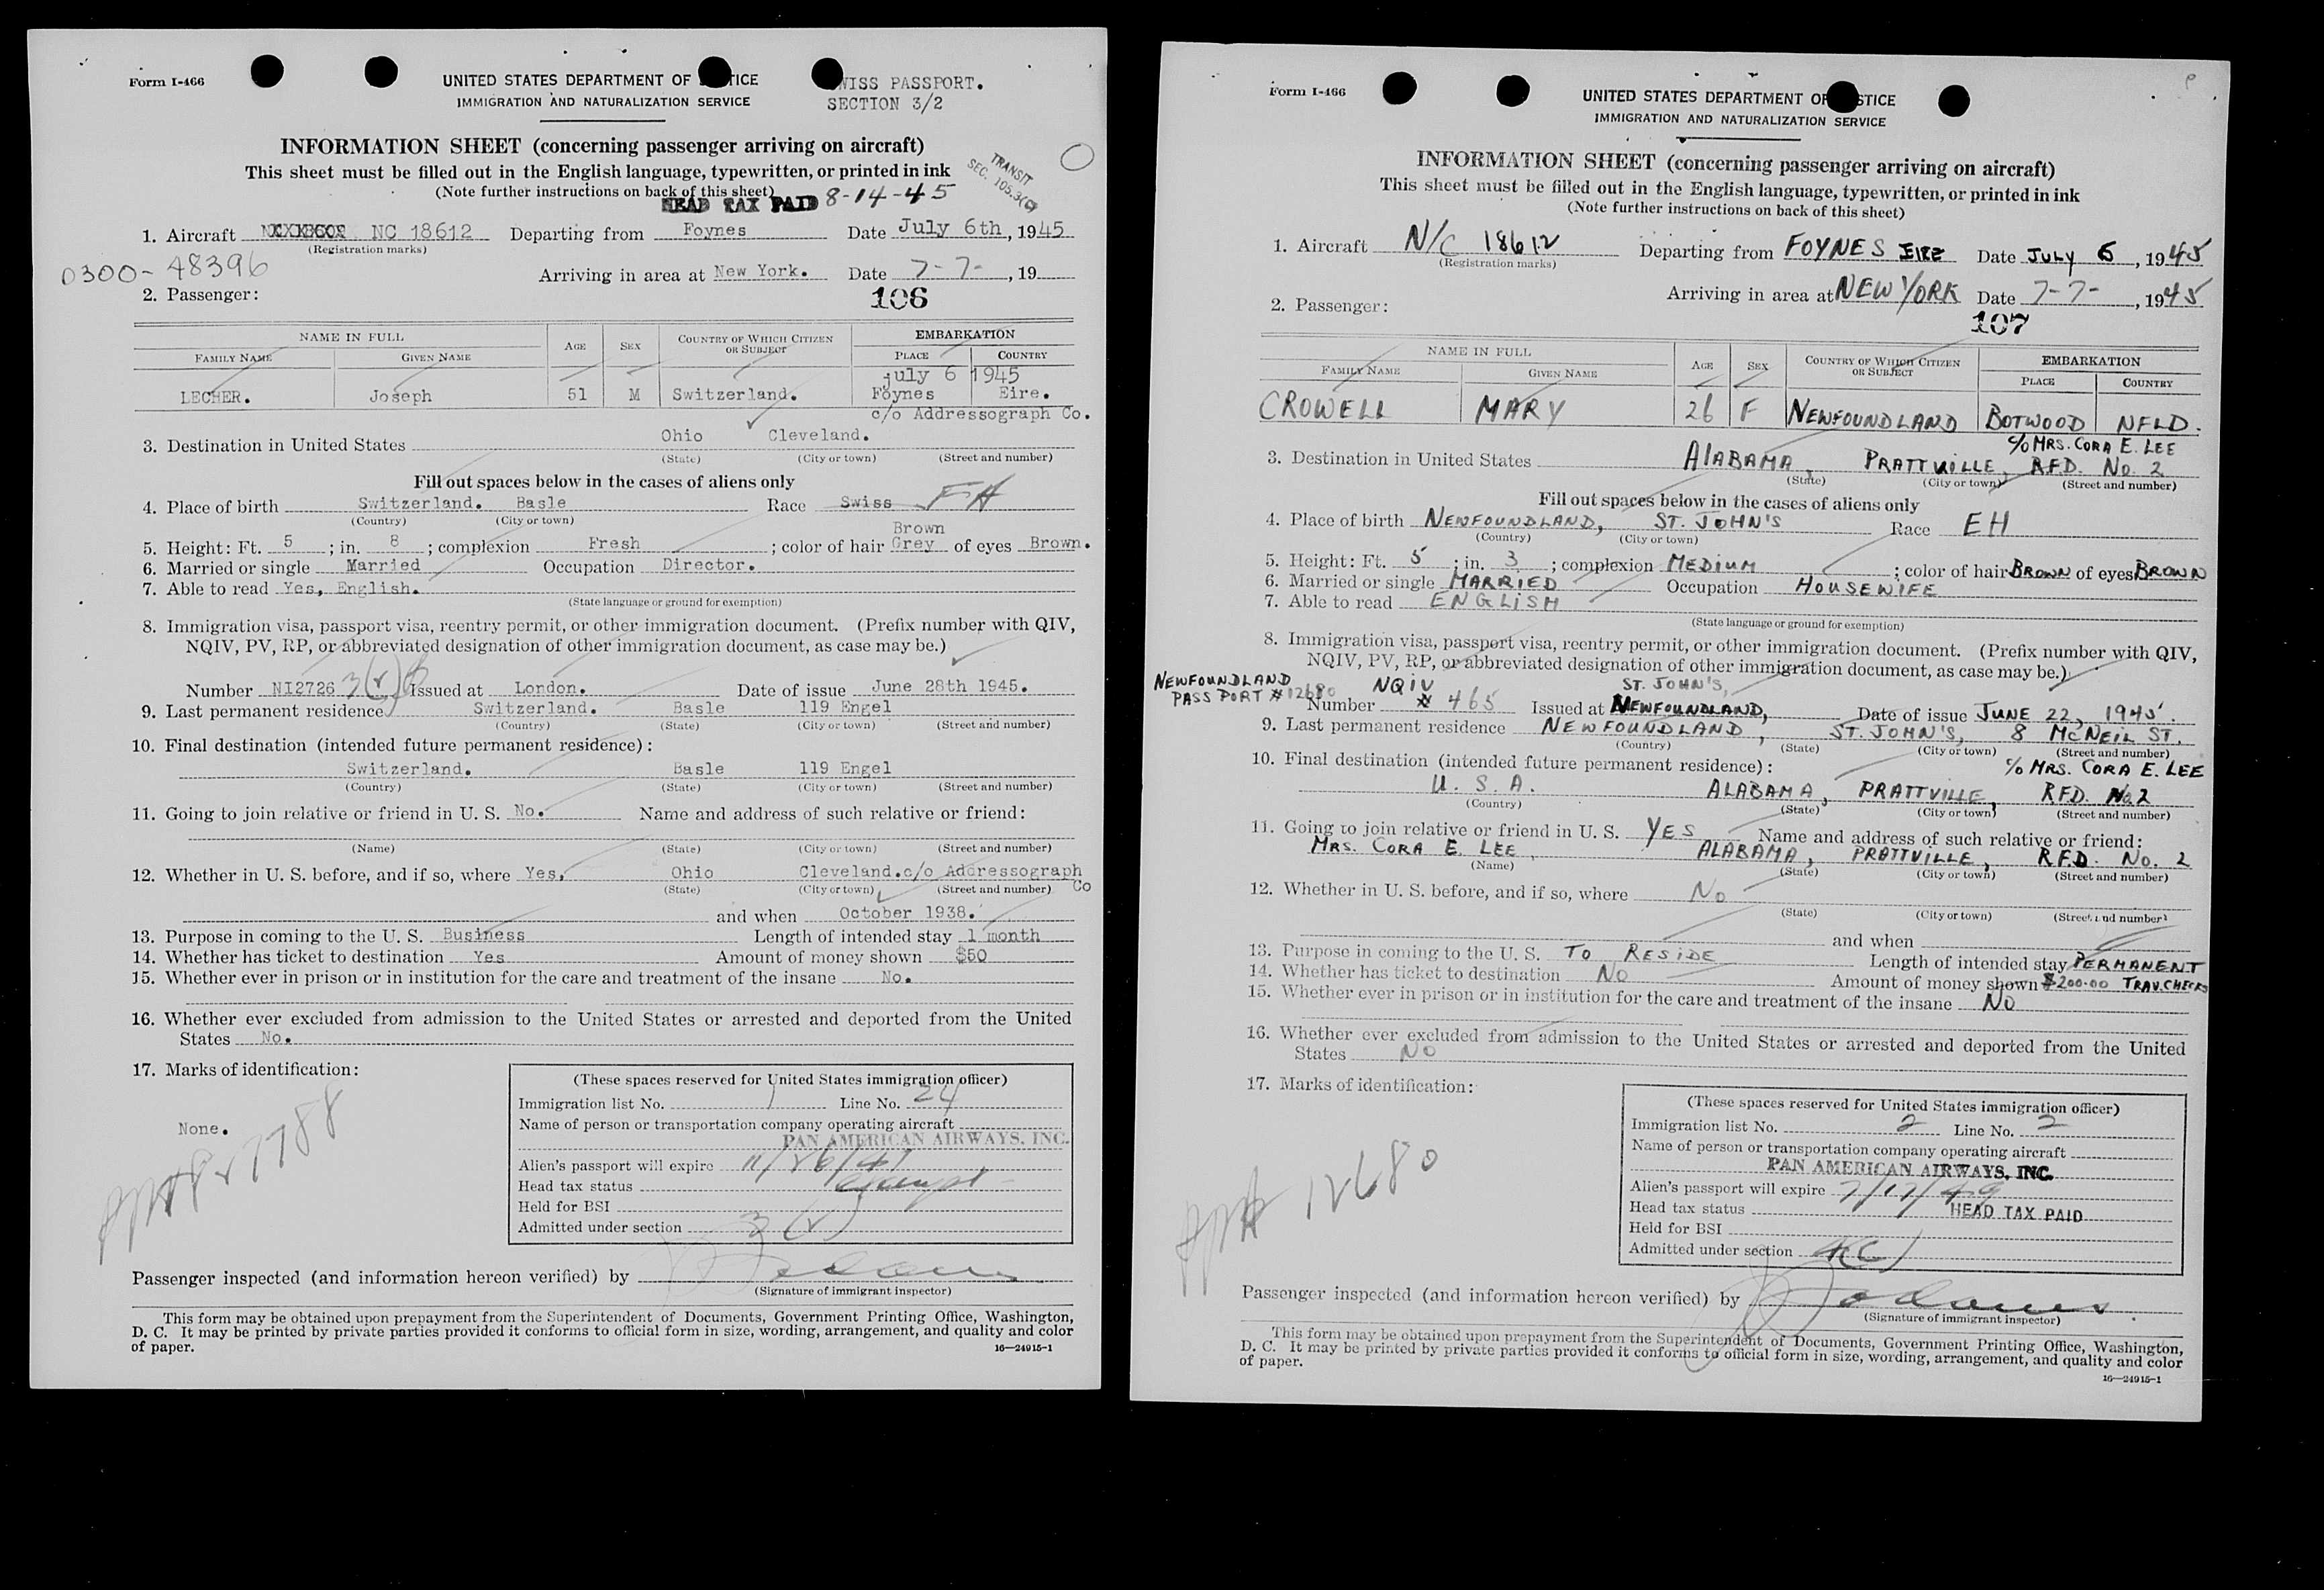 Form I-466
UNITED STATES DEPARTMENT OF TICE
WISS PASSPORT.
IMMIGRATION AND NATURALIZATION SERVICE
SECTION 3/2
INFORMATION SHEET (concerning passenger arriving on aircraft)
This sheet must be filled out in the English language, typewritten, or printed in ink
TRANSIT
SEC. 105.3(c)
(Note further instructions on back of this sheet)
HEAD TAX PAID 8-14-45
1. Aircraft NC 18612 Departing from Foynes Date July 6th, 1945
(Registration marks)
0300-48396
Arriving in area at New York. Date 7-7-, 19
2. Passenger:
106
NAME IN FULL AGE SEX COUNTRY OF WHICH CITIZEN OR SUBJECT EMBARKATION
FAMILY NAME GIVEN NAME PLACE COUNTRY
july 6 1945
LECHER. Joseph 51 M Switzerland. Foynes Eire.
c/o Addressograph Co.
3. Destination in United States Ohio Cleveland.
(State) (City or town) (Street and number)
Fill out spaces below in the cases of aliens only
4. Place of birth Switzerland. Basle Race Swiss
(Country) (City or town)
Brown
5. Height: Ft. 5 ; in. 8 ; complexion Fresh ; color of hair Grey of eyes Brown.
6. Married or single Married Occupation Director.
7. Able to read Yes, English.
(State language or ground for exemption)
8. Immigration visa, passport visa, reentry permit, or other immigration document. (Prefix number with QIV,
NQIV, PV, RP, or abbreviated designation of other immigration document, as case may be.)
Number NI2726 3(2) Issued at London. Date of issue June 28th 1945.
9. Last permanent residence Switzerland. Basle 119 Engel
(Country) (State) (City or town) (Street and number)
10. Final destination (intended future permanent residence):
Switzerland. Basle 119 Engel
(Country) (State) (City or town) (Street and number)
11. Going to join relative or friend in U. S. No. Name and address of such relative or friend:
(Name) (State) (City or town) (Street and number)
12. Whether in U. S. before, and if so, where Yes, Ohio Cleveland. c/o Addressograph
(State) (City or town) (Street and number) Co
and when October 1938.
13. Purpose in coming to the U. S. Business Length of intended stay 1 month
14. Whether has ticket to destination Yes Amount of money shown $50
15. Whether ever in prison or in institution for the care and treatment of the insane No.
16. Whether ever excluded from admission to the United States or arrested and deported from the United
States No.
17. Marks of identification:
None.
(These spaces reserved for United States immigration officer)
Immigration list No. 1 Line No. 24
Name of person or transportation company operating aircraft
PAN AMERICAN AIRWAYS, INC.
Alien's passport will expire 11/26/47
Head tax status exempt
Held for BSI
Admitted under section 3(2)
Passenger inspected (and information hereon verified) by
(Signature of immigrant inspector)
This form may be obtained upon prepayment from the Superintendent of Documents, Government Printing Office, Washington,
D. C. It may be printed by private parties provided it conforms to official form in size, wording, arrangement, and quality and color
of paper.
16—24915-1
Form I-466
UNITED STATES DEPARTMENT OF STICE
IMMIGRATION AND NATURALIZATION SERVICE
INFORMATION SHEET (concerning passenger arriving on aircraft)
This sheet must be filled out in the English language, typewritten, or printed in ink
(Note further instructions on back of this sheet)
1. Aircraft N/C 18612 Departing from FOYNES EIRE Date JULY 6, 1945
(Registration marks)
Arriving in area at NEW YORK Date 7-7-, 1945
2. Passenger:
107
NAME IN FULL AGE SEX COUNTRY OF WHICH CITIZEN OR SUBJECT EMBARKATION
FAMILY NAME GIVEN NAME PLACE COUNTRY
CROWELL MARY 26 F NEWFOUNDLAND BOTWOOD NFLD.
c/o MRS. CORA E. LEE
3. Destination in United States ALABAMA, PRATTVILLE, R.F.D. No. 2
(State) (City or town) (Street and number)
Fill out spaces below in the cases of aliens only
4. Place of birth NEWFOUNDLAND, ST. JOHN'S Race EH
(Country) (City or town)
5. Height: Ft. 5 ; in. 3 ; complexion MEDIUM ; color of hair BROWN of eyes BROWN
6. Married or single MARRIED Occupation HOUSEWIFE
7. Able to read ENGLISH
(State language or ground for exemption)
8. Immigration visa, passport visa, reentry permit, or other immigration document. (Prefix number with QIV,
NQIV, PV, RP, or abbreviated designation of other immigration document, as case may be.)
NEWFOUNDLAND
PASSPORT # 12680
NQIV ST. JOHN'S,
Number # 465 Issued at NEWFOUNDLAND, Date of issue JUNE 22, 1945.
9. Last permanent residence NEWFOUNDLAND, ST. JOHN'S, 8 MCNEIL ST.
(Country) (State) (City or town) (Street and number)
10. Final destination (intended future permanent residence): c/o MRS. CORA E. LEE
U. S. A. ALABAMA, PRATTVILLE, RFD. No. 2
(Country) (State) (City or town) (Street and number)
11. Going to join relative or friend in U. S. YES Name and address of such relative or friend:
MRS. CORA E. LEE, ALABAMA, PRATTVILLE, R.F.D. No. 2
(Name) (State) (City or town) (Street and number)
12. Whether in U. S. before, and if so, where No
(State) (City or town) (Street and number)
and when
13. Purpose in coming to the U. S. TO RESIDE Length of intended stay PERMANENT
14. Whether has ticket to destination NO Amount of money shown $200.00 TRAV. CHECKS
15. Whether ever in prison or in institution for the care and treatment of the insane NO
16. Whether ever excluded from admission to the United States or arrested and deported from the United
States NO
17. Marks of identification:
12680
(These spaces reserved for United States immigration officer)
Immigration list No. 2 Line No. 2
Name of person or transportation company operating aircraft
PAN AMERICAN AIRWAYS, INC.
Alien's passport will expire 7/17/49
Head tax status HEAD TAX PAID
Held for BSI
Admitted under section 4(c)
Passenger inspected (and information hereon verified) by
(Signature of immigrant inspector)
This form may be obtained upon prepayment from the Superintendent of Documents, Government Printing Office, Washington,
D. C. It may be printed by private parties provided it conforms to official form in size, wording, arrangement, and quality and color
of paper.
16—24915-1